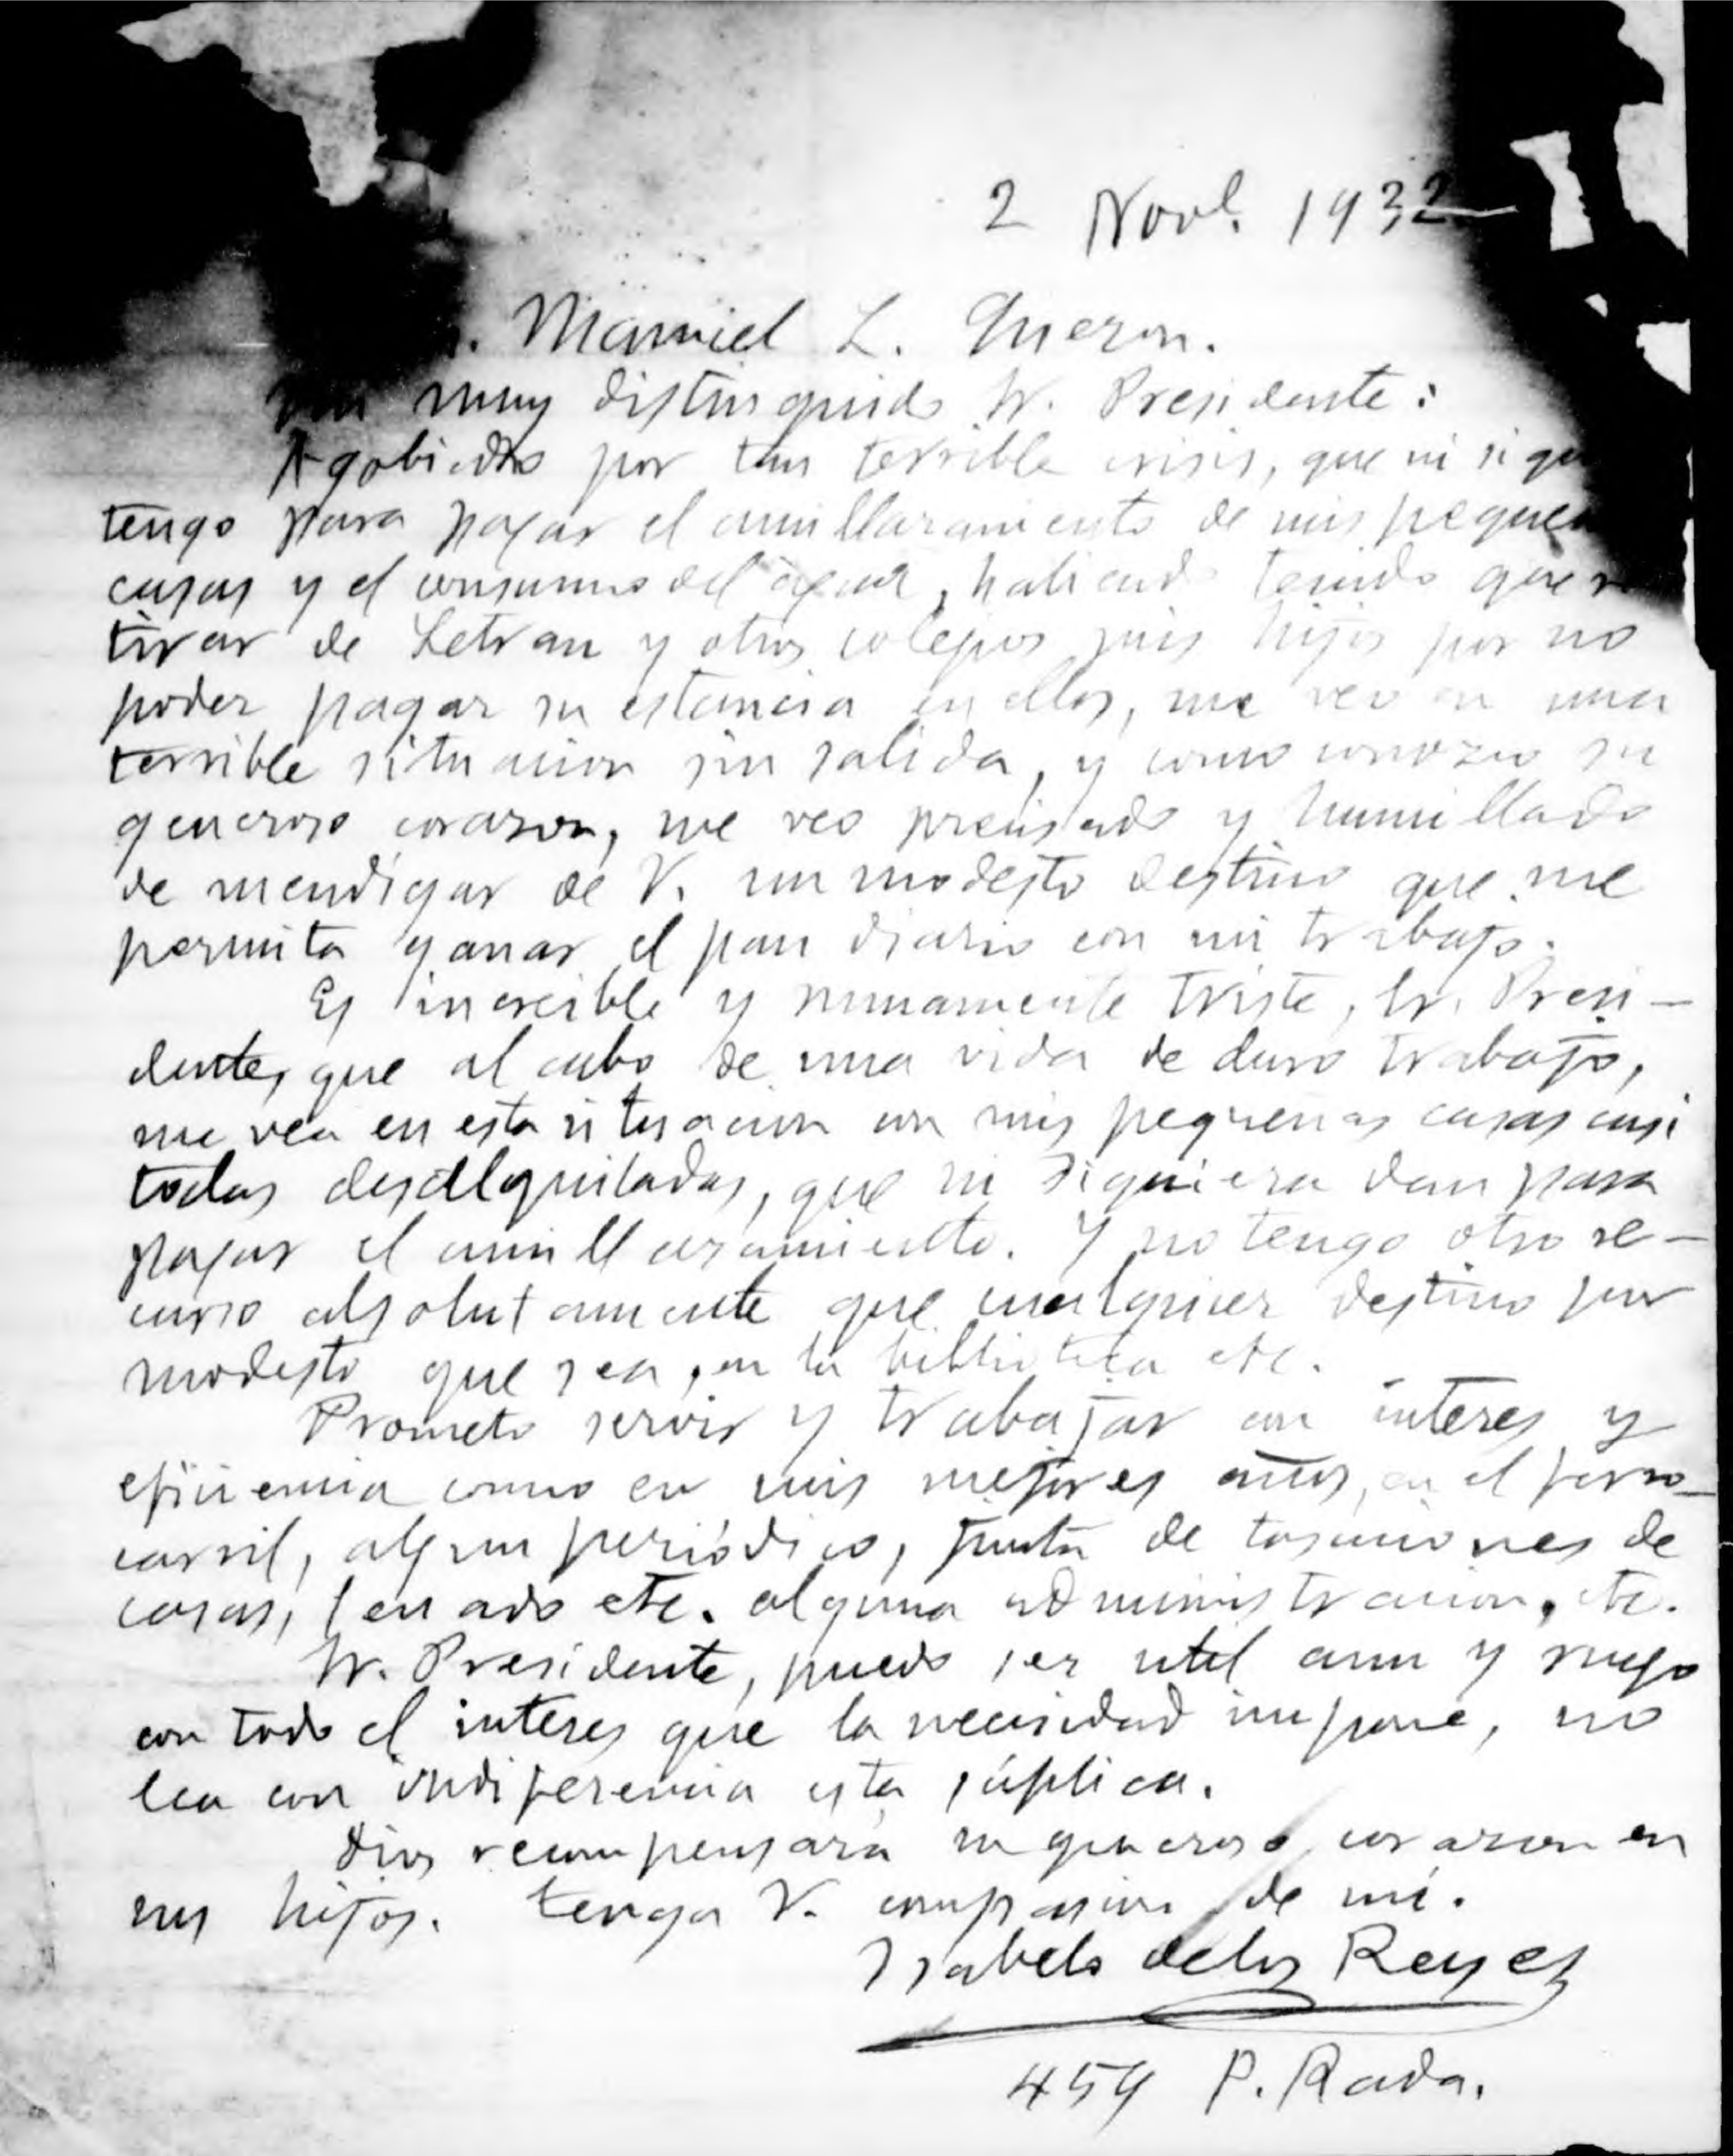 2 Novl. 1932
Manuel L. Quezon.
muy distinguido Sr. Presidente:
Agobiado por tan terrible crisis, que ni siqu
tengo para pagar el amillaramiento de mis peque
casas y el consumo del agua, habiendo tenido que r
tirar de Letran y otros colegios mis hijos por no
poder pagar su estancia en ellos, me veo en una
terrible situacion sin salida, y como conozco su
generoso corazon, me veo precisado y humillado
de mendigar de V. un modesto destino que me
permita ganar el pan diario con mi trabajo.
Es increible y sumamente triste, Sr. Presi-
dente, que al cabo de una vida de duro trabajo,
me vea en esta situacion con mis pequeñas casas casi
todas desalquiladas, que ni siquiera dan para
pagar el amillaramiento. Y no tengo otro re-
curso absolutamente que cualquier destino por
modesto que sea, en la biblioteca etc.
Prometo servir y trabajar con interes y
eficiencia como en mis mejores años, en el ferro-
carril, algun periódico, junta de tasaciones de
casas, Senado etc. alguna administracion, etc.
Sr. Presidente, puedo ser util aun y ruego
con todo el interes que la necesidad impone, no
lea con indiferencia esta súplica.
Dios recompensará su generoso corazon en
sus hijos. Tenga V. compasion de mí.
Isabelo delos Reyes
454 P. Rada.